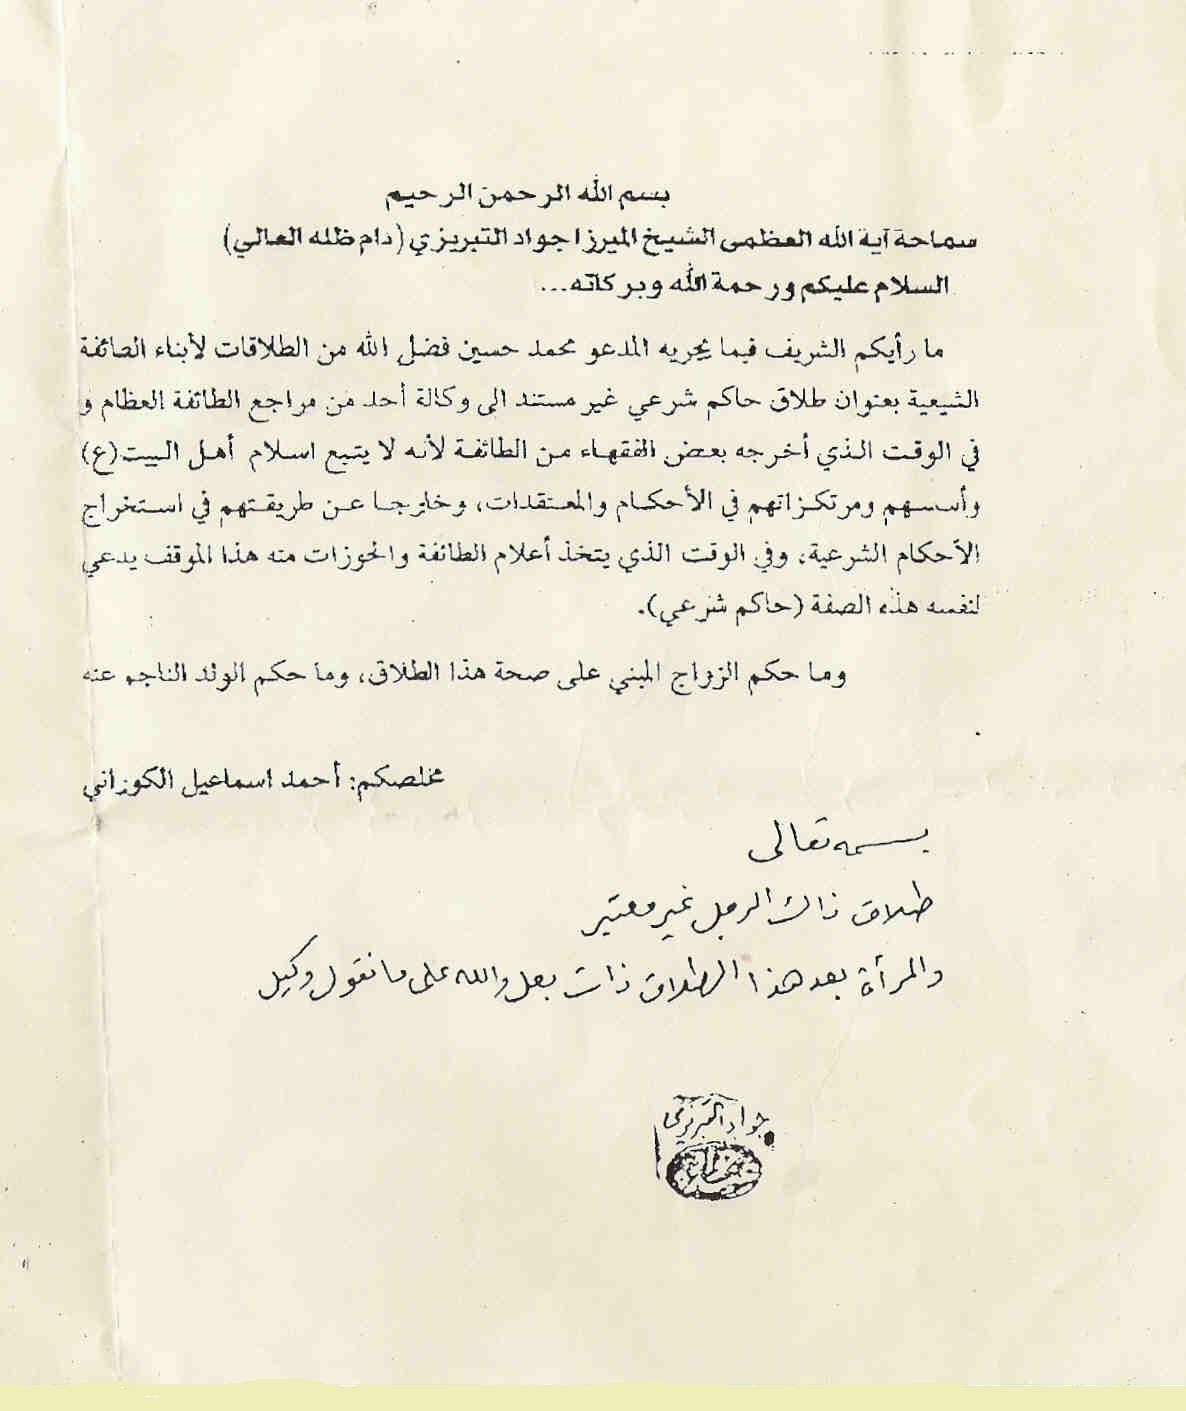 بسم الله الرحمن الرحيم
سماحة آية الله العظمى الشيخ الميرزا جواد التبريزي (دام ظله العالي)
السلام عليكم ورحمة الله وبركاته...
ما رأيكم الشريف فيما يجريه المدعو محمد حسين فضل الله من الطلاقات لأبناء الطائفة
الشيعية بعنوان طلاق حاكم شرعي غير مستند الى وكالة أحد من مراجع الطائفة العظام و
في الوقت الذي أخرجه بعض الفقهاء من الطائفة لأنه لا يتبع اسلام أهل البيت (ع)
وأسسهم ومرتكزاتهم في الأحكام والمعتقدات، وخارجا عن طريقتهم في استخراج
الأحكام الشرعية، وفي الوقت الذي يتخذ أعلام الطائفة والحوزات منه هذا الموقف يدعي
لنفسه هذه الصفة (حاكم شرعي).
وما حكم الزواج المبني على صحة هذا الطلاق، وما حكم الولد الناجم عنه
.
مخلصكم: أحمد اسماعيل الكوراني
بسمه تعالى
طلاق ذاك الرجل غير معتبر
والمرأة بعد هذا الطلاق ذات بعل والله على ما نقول وكيل
جواد التبريزي